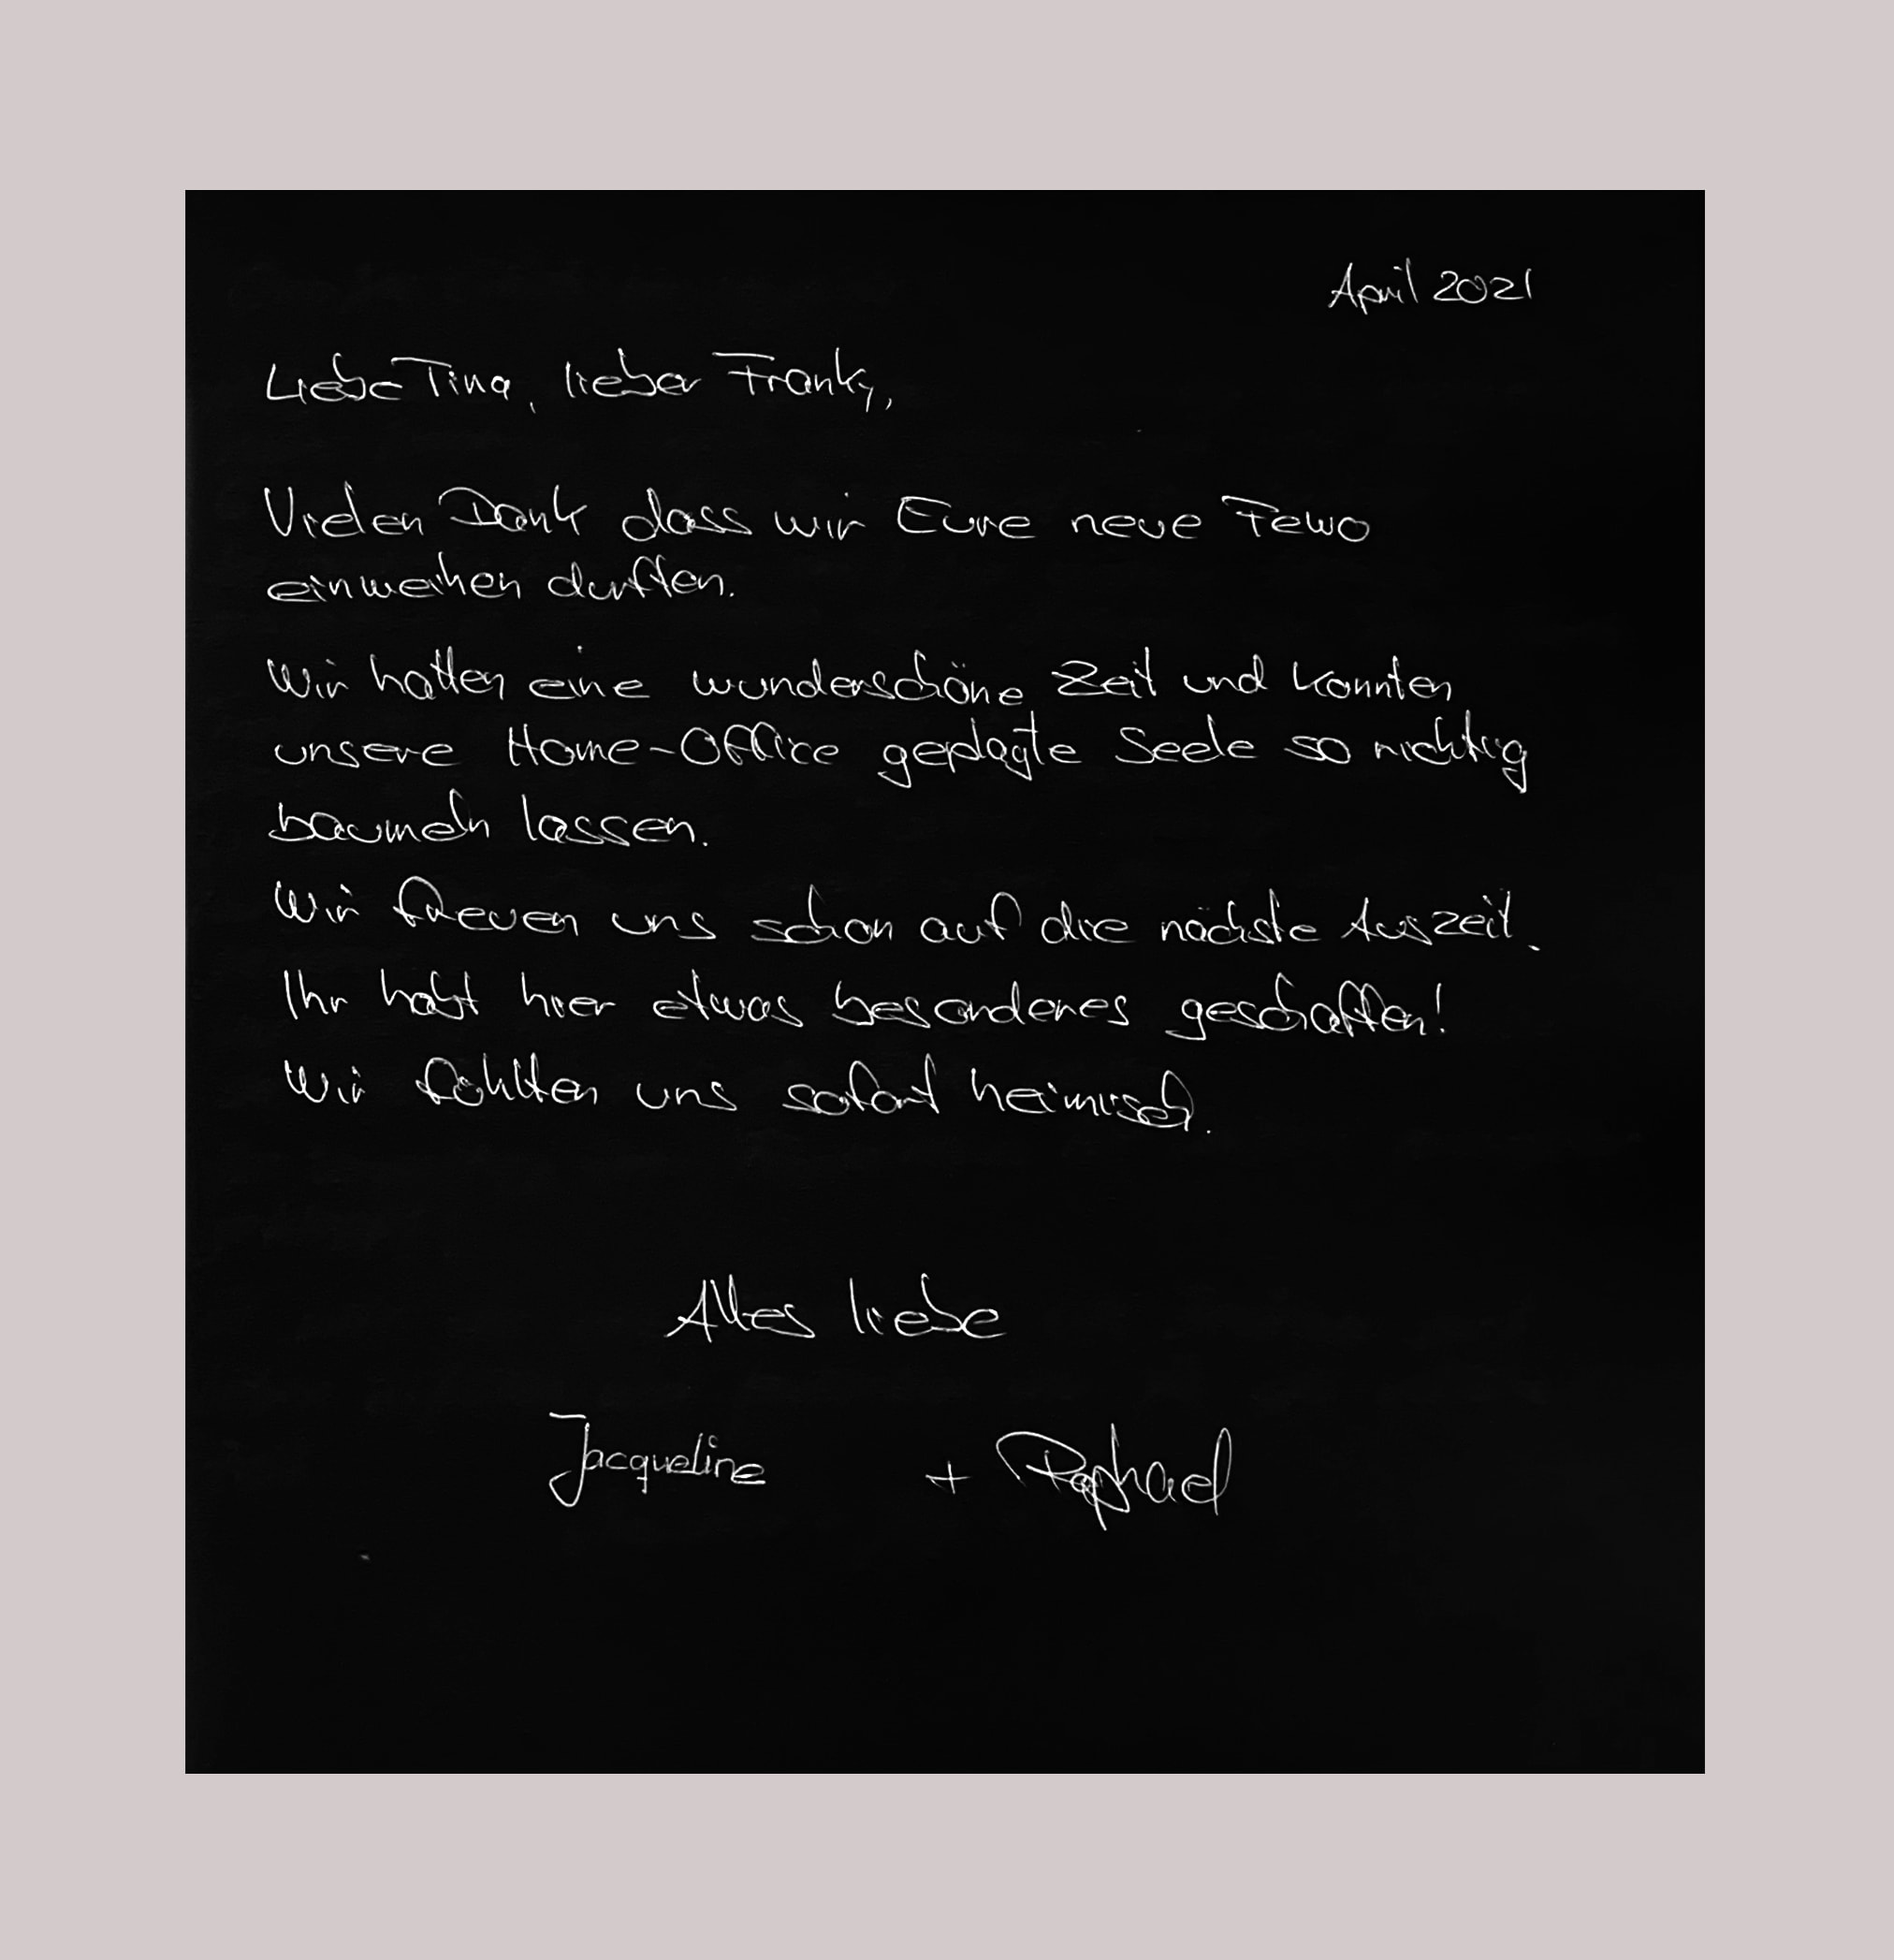 April 2021
Liebe Tina, lieber Franky,
Vielen Dank dass wir Eure neue Fewo
einweihen durften.
Wir hatten eine wunderschöne Zeit und konnten
unsere Home-Office geplagte Seele so richtig
baumeln lassen.
Wir freuen uns schon auf die nächste Auszeit.
Ihr habt hier etwas besonderes geschaffen!
Wir fühlten uns sofort heimisch.
Alles liebe
Jacqueline + Raphael